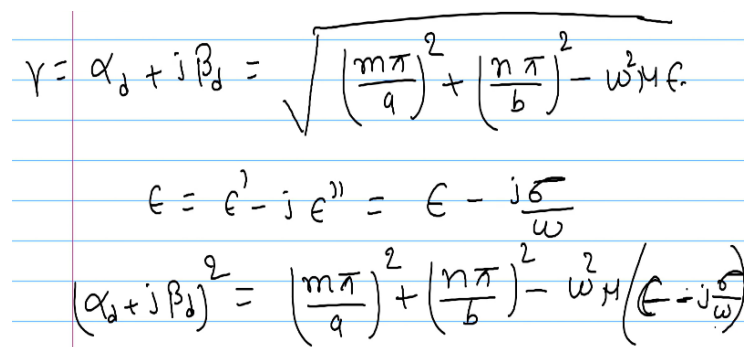 γ = α_d + jβ_d = √((mπ/a)² + (nπ/b)² − ω²μϵ)
ϵ = ϵ' − jϵ'' = ϵ − jσ/ω
(α_d + jβ_d)² = (mπ/a)² + (nπ/b)² − ω²μ(ϵ − jσ/ω)